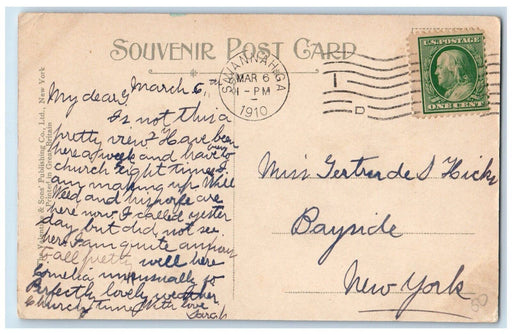 SOUVENIR POST CARD
SAVANNAH, GA
MAR 6
1-PM
1910
1
D
U.S. POSTAGE
ONE CENT
The Valentine & Sons' Publishing Co., Ltd., New York
Printed in Great Britain
March 6,
My dear G,
Is not this a
pretty view? Have been
here a week and have been
church eight times. I
am making up. Will
Weed and his wife are
here now I called yester
day but did not see
her. I am quite
well here
unusually so
Perfectly lovely weather
Church time. With love
Sarah
Miss Gertrude S Hicks
Bayside
New York